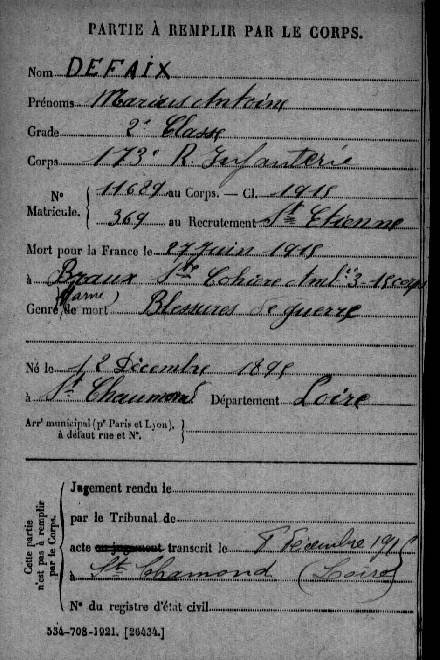 PARTIE À REMPLIR PAR LE CORPS.
Nom DEFAIX
Prénoms Marius Antoine
Grade 2e Classe
Corps 173e R. Infanterie
No Matricule. 11689 au Corps. — Cl. 1915
369 au Recrutement St Etienne
Mort pour la France le 27 Juin 1915
à Braux Ste Cohière Amb. 3
(Marne)
Genre de mort Blessures de guerre
Né le 2 Décembre 1895
à St Chamond Département Loire
Arrt municipal (pr Paris et Lyon), à défaut rue et No.
Cette partie n'est pas à remplir par le Corps.
Jugement rendu le
par le Tribunal de
acte ou jugement transcrit le Décembre
à St Chamond (Loire)
No du registre d'état civil
534-708-1921. [26434.]